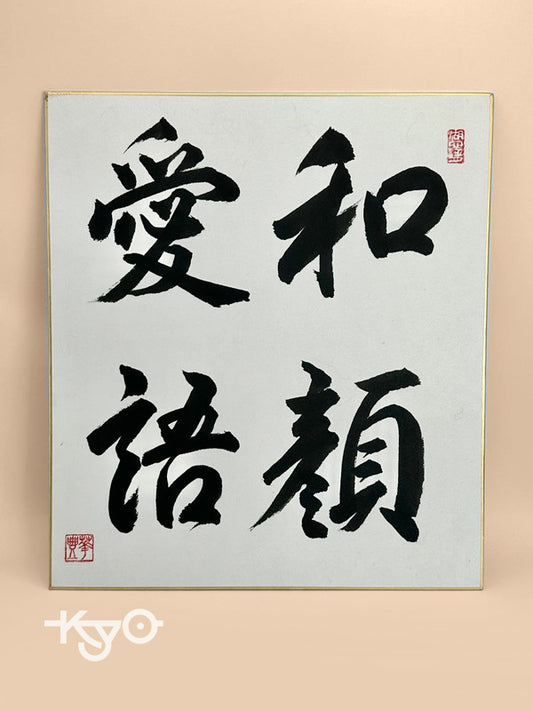 和顔
愛語
Kyo